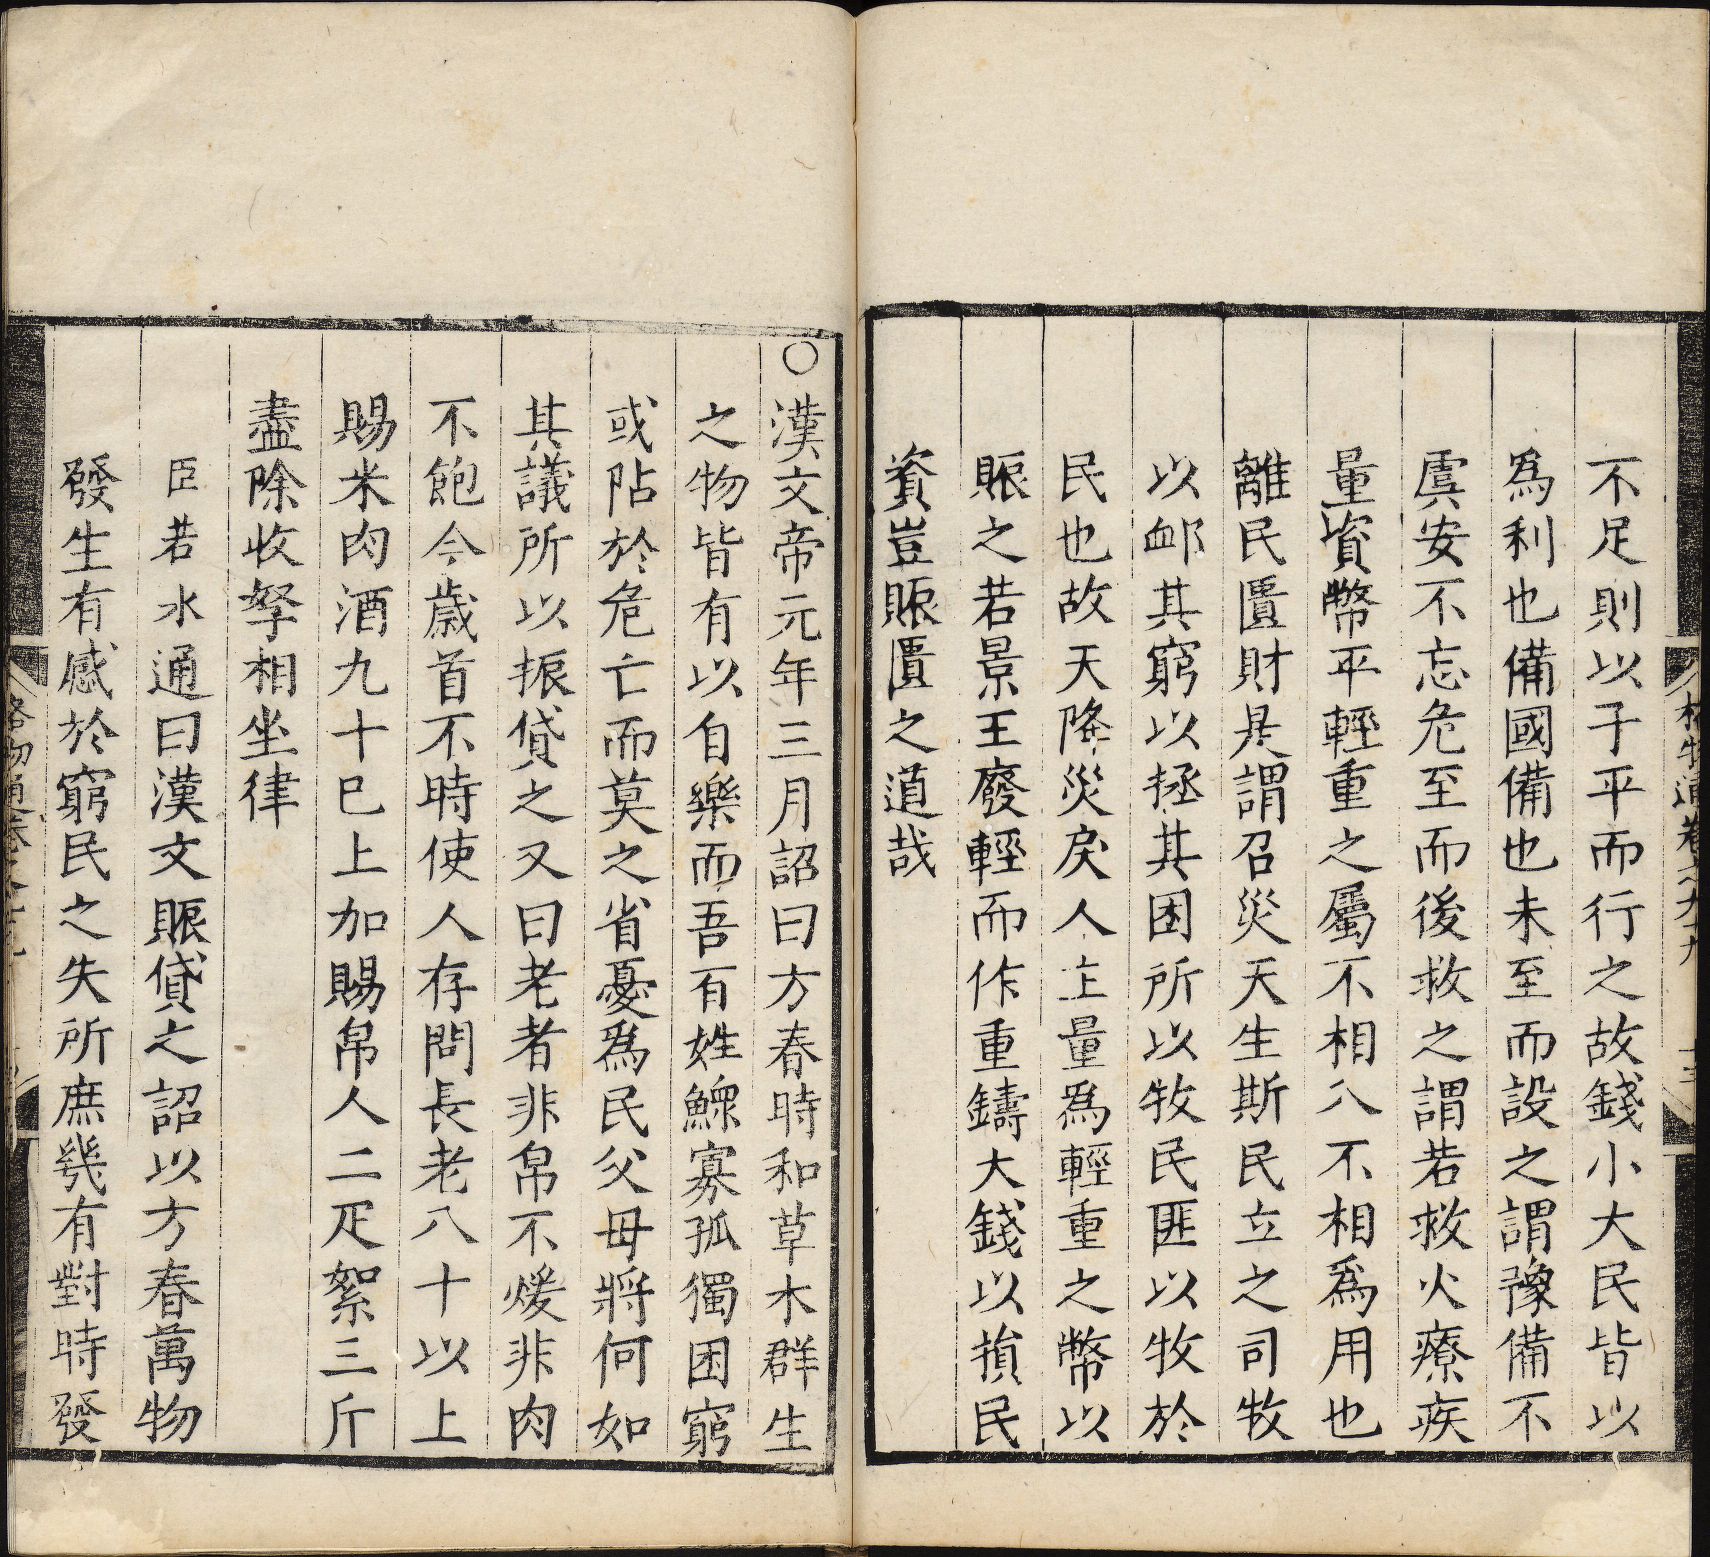 不足則以子平而行之故錢小大民皆以
爲利也備國備也未至而設之謂豫備不
虞安不忘危至而後救之謂若救火療疾
量資幣平輕重之屬不相入不相爲用也
離民匱財是謂召災天生斯民立之司牧
以䘏其窮以拯其困所以牧民匪以牧於
民也故天降災戾人主量爲輕重之幣以
賑之若景王廢輕而作重鑄大錢以損民
資豈賑匱之道哉
○漢文帝元年三月詔曰方春時和草木群生
之物皆有以自樂而吾百姓鰥寡孤獨困窮
或阽於危亡而莫之省憂爲民父母將何如
其議所以振貸之又曰老者非帛不煖非肉
不飽今歲首不時使人存問長老八十以上
賜米肉酒九十已上加賜帛人二疋絮三斤
盡除收孥相坐律
臣若水通曰漢文賑貸之詔以方春萬物
發生有感於窮民之失所庶幾有對時發